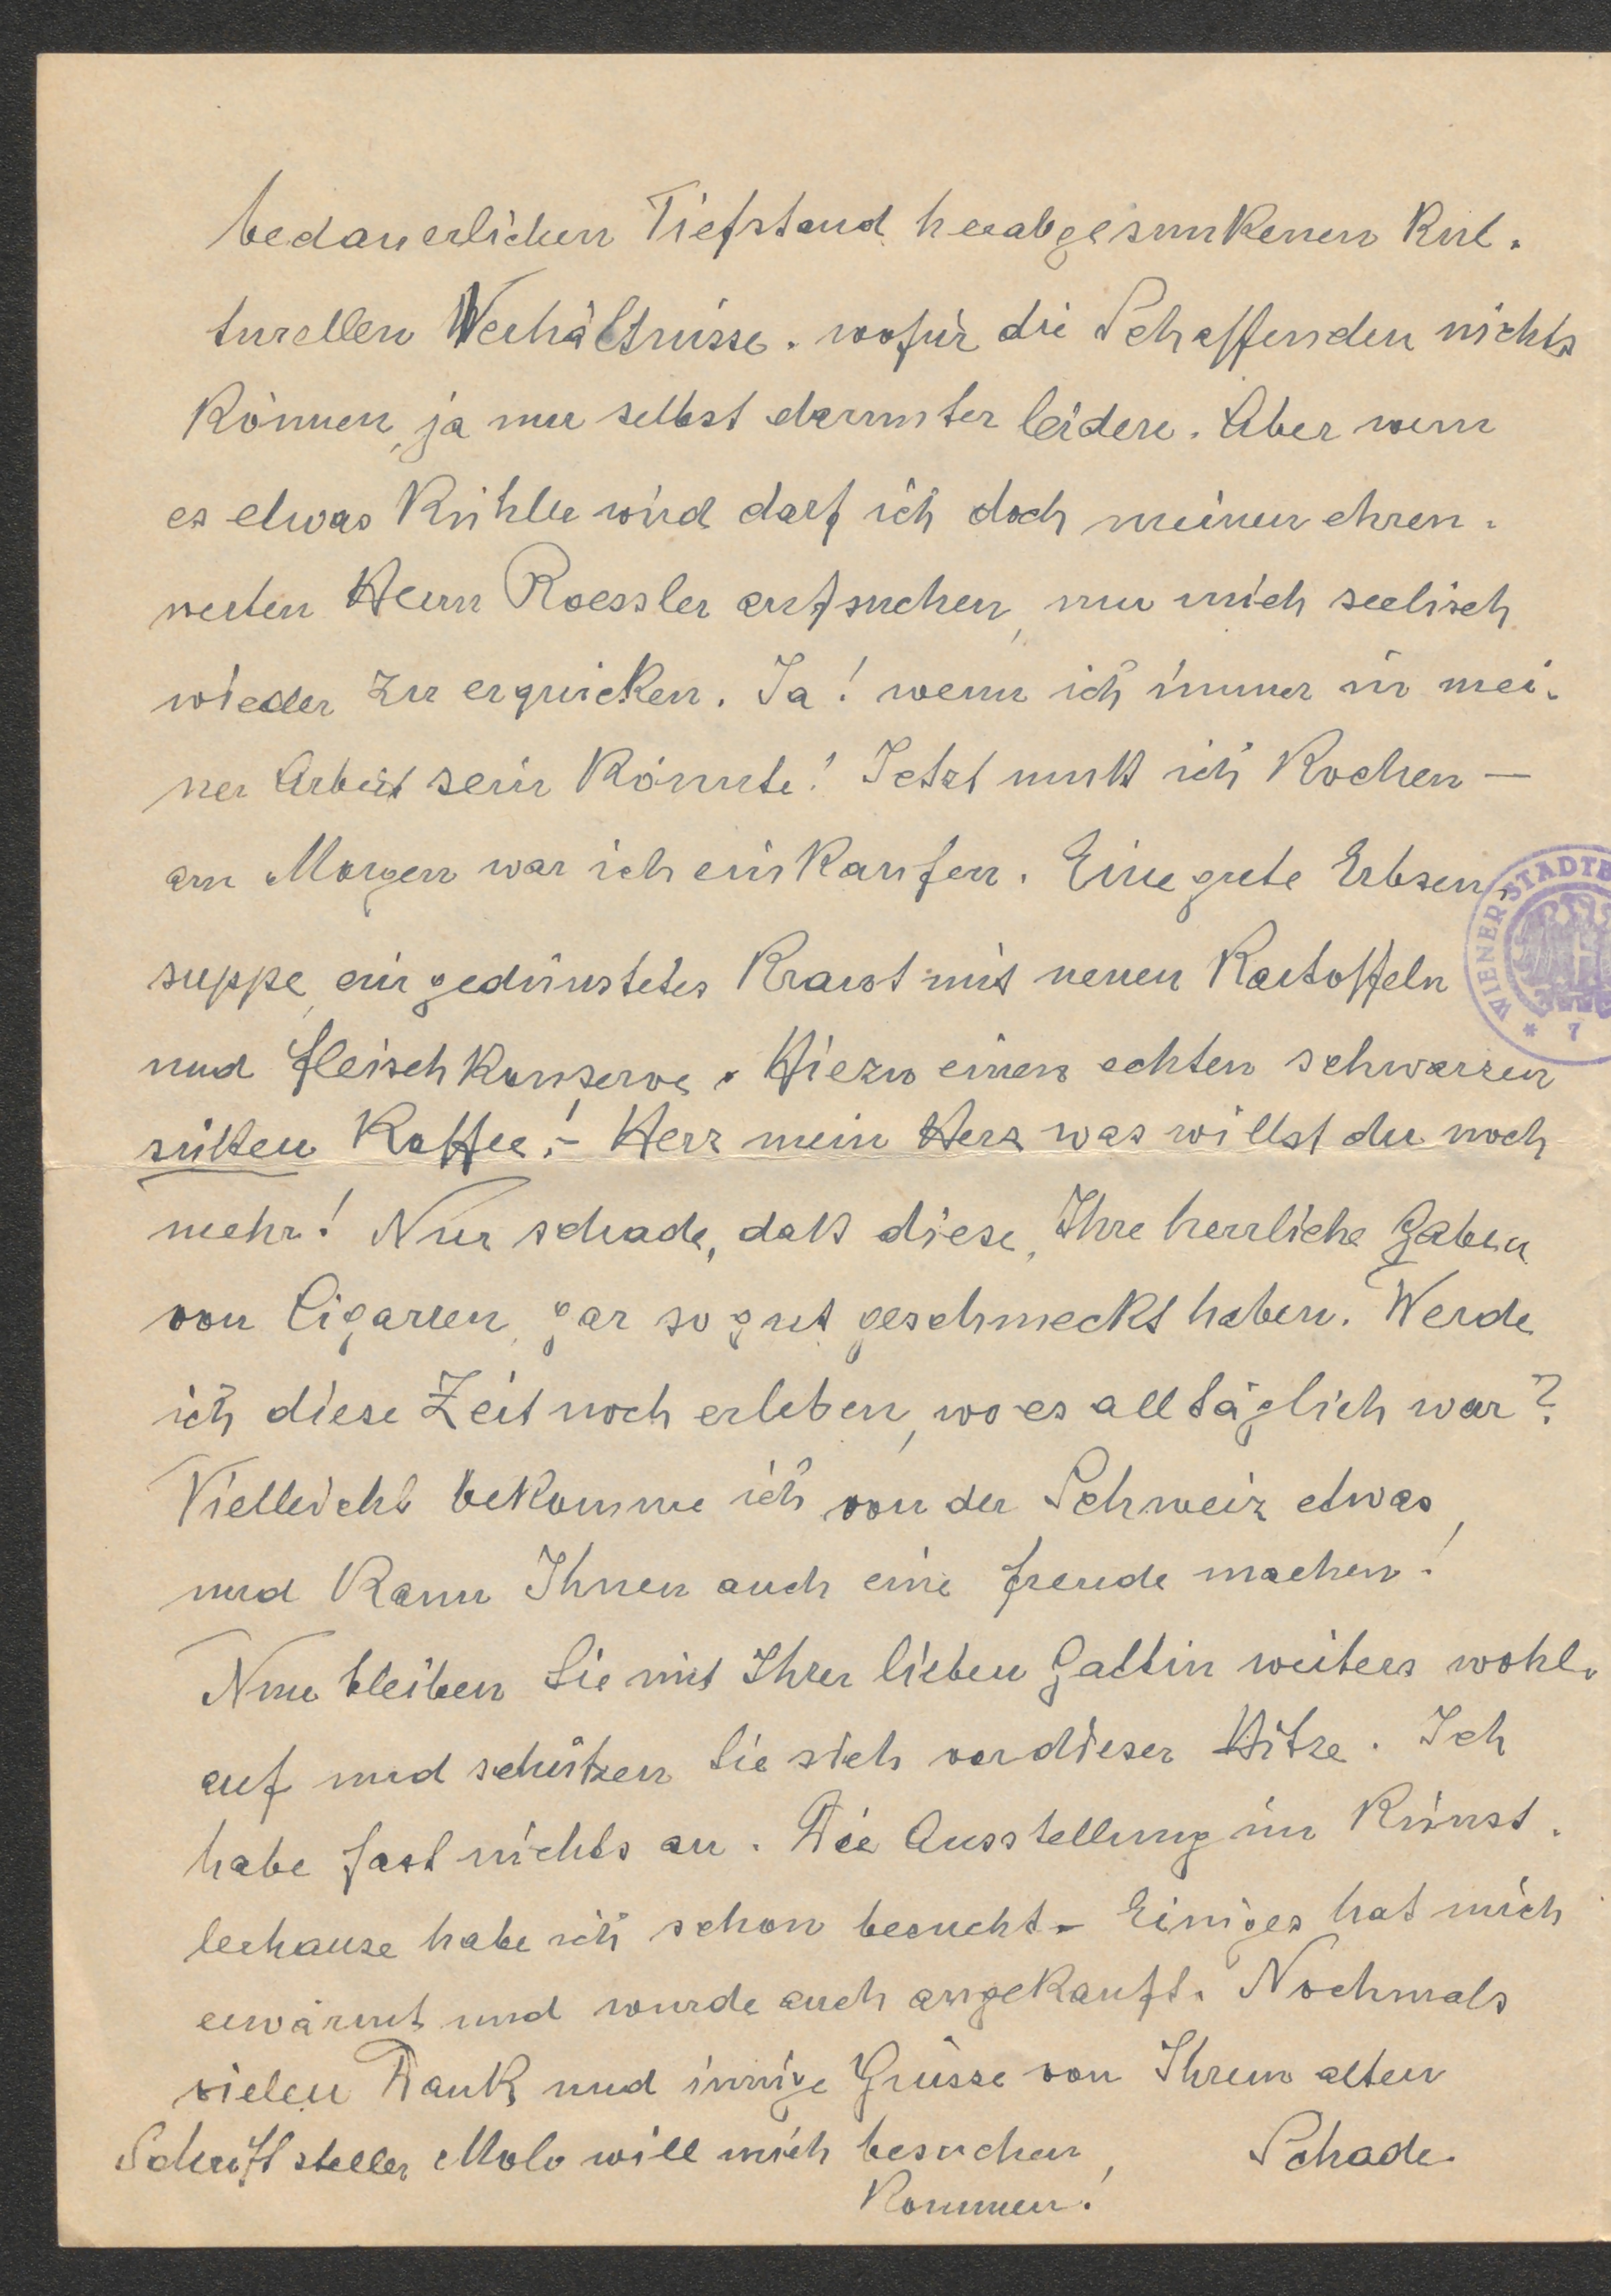 bedauerlichen Tiefstand herabgesunkenen kul-
turellen Verhältnisse. wofür die Schaffenden nichts
können, ja nur selbst darunter leiden. Aber wenn
es etwas kühler wird darf ich doch meinen ehren-
werten Herrn Roessler aufsuchen, um mich seelisch
wieder zu erquicken. Ja! wenn ich immer in mei-
ner Arbeit sein könnte! Jetzt muß ich kochen —
am Morgen war ich einkaufen. Eine gute Erbsen-
suppe, ein gedünstetes Kraut mit neuen Kartoffeln
und Fleischkonserve. Hiezu einen echten schwarzen
süßen Kaffee! – Herz mein Herz was willst du noch
mehr! Nur schade, daß diese, Ihre herrliche Gaben
von Cigarren, gar so gut geschmeckt haben. Werde
ich diese Zeit noch erleben, wo es alltäglich war?
Vielleicht bekomme ich von der Schweiz etwas,
und kann Ihnen auch eine Freude machen!
Nun bleiben Sie mit Ihrer lieben Gattin weiters wohl-
auf und schützen Sie sich vor dieser Hitze. Ich
habe fast nichts an. Die Ausstellung im Künst-
lerhause habe ich schon besucht – Einiges hat mich
erwärmt und wurde auch angekauft. Nochmals
vielen Dank und innige Grüsse von Ihrem alten
Schade.
Schriftsteller Molo will mich besuchen,
kommen!
WIENER STADTB
* 7